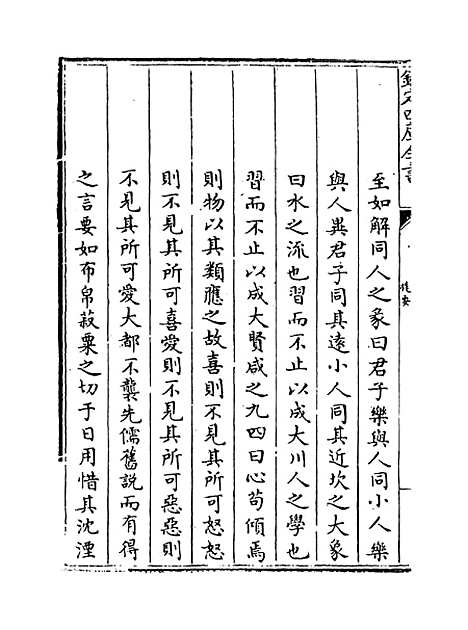 欽定四庫全書
提要
至如解同人之象曰君子樂與人同小人樂
與人異君子同其遠小人同其近坎之大象
曰水之流也習而不止以成大川人之學也
習而不止以成大賢咸之九四曰心苟傾焉
則物以其類應之故喜則不見其所可怒怒
則不見其所可喜愛則不見其所可惡惡則
不見其所可愛大都不襲先儒舊說而有得
之言要如布帛菽粟之切于日用惜其沈湮